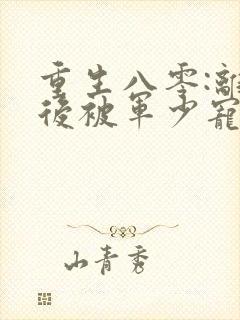 重生八零:離
後被軍少寵
山青秀